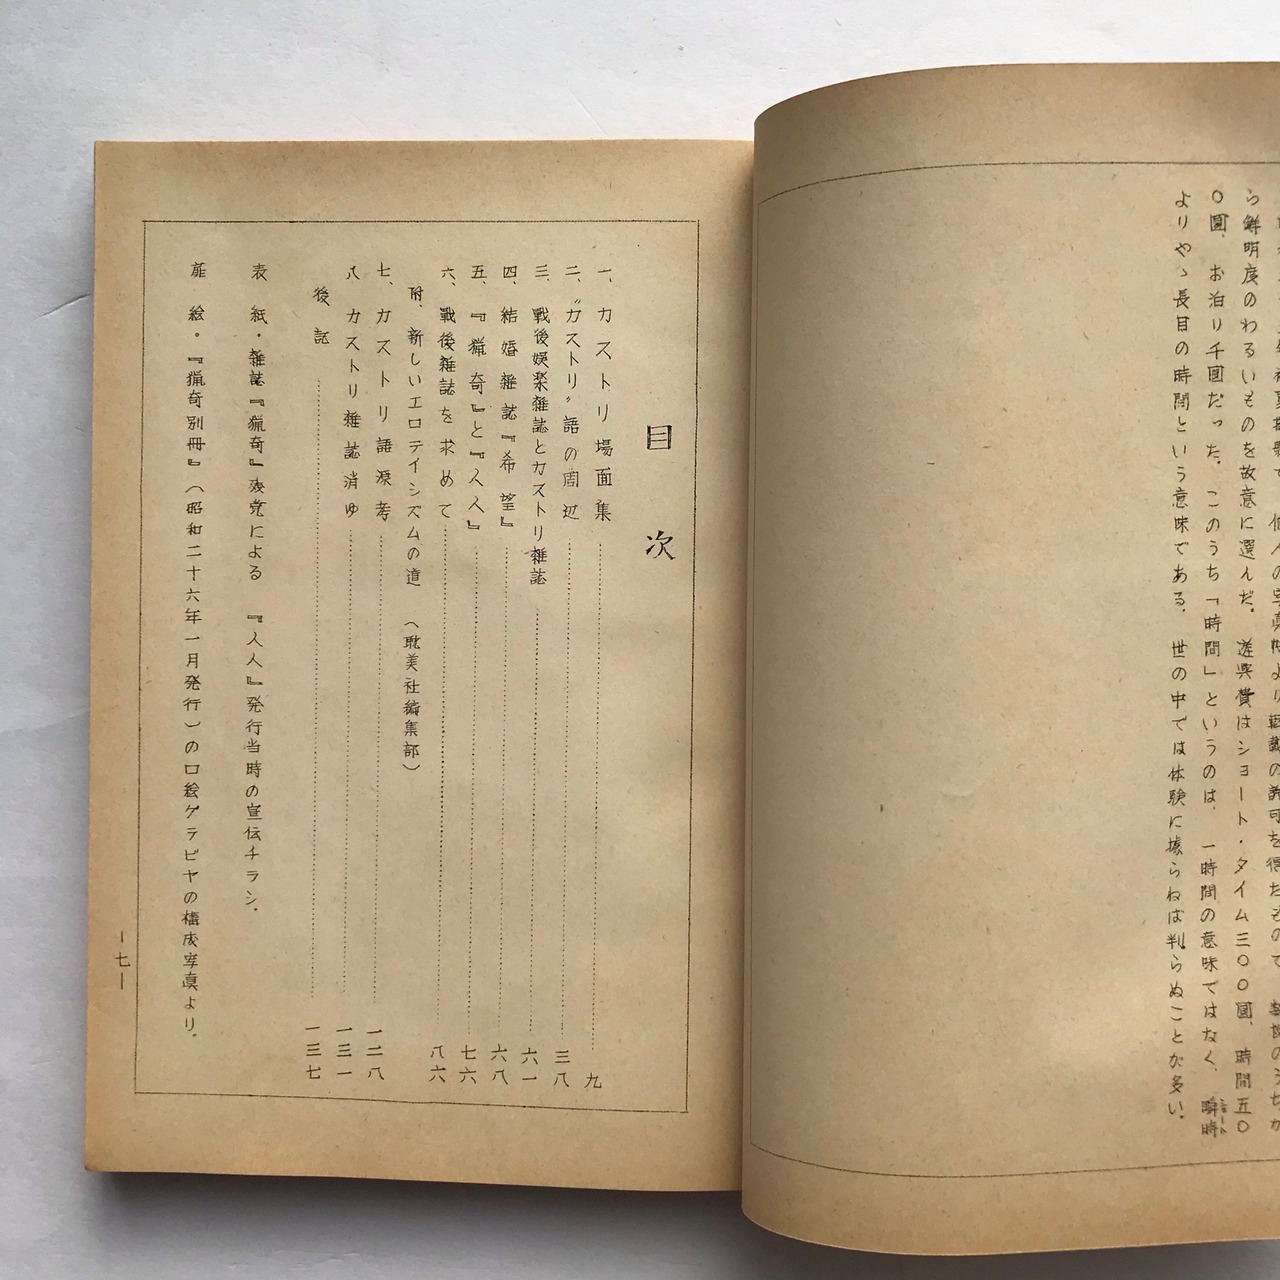 ら鮮明度のわるいものを故意に選んだ。遊興費はショート・タイム三〇〇圓、時間五〇
〇圓、お泊り千圓だった。このうち「時間」というのは、一時間の意味ではなく、瞬時
ショート
よりやゝ長目の時間という意味である。世の中では体験に據らねば判らぬことが多い。
目次
一、カストリ場面集……九
二、〝カストリ〟語の周辺……三八
三、戦後娯楽雑誌とカストリ雑誌……六一
四、結婚雑誌『希望』……六八
五、『猟奇』と『人人』……七六
六、戦後雑誌を求めて……八六
附、新しいエロテイシズムの道（耽美社編集部）
七、カストリ語源考……一二八
八 カストリ雑誌消ゆ……一三一
後記……一三七
表紙・雑誌『猟奇』表売による 『人人』発行当時の宣伝チラシ。
扉絵・『猟奇別冊』（昭和二十六年一月発行）の口絵グラビヤの構成写真より。
―七―